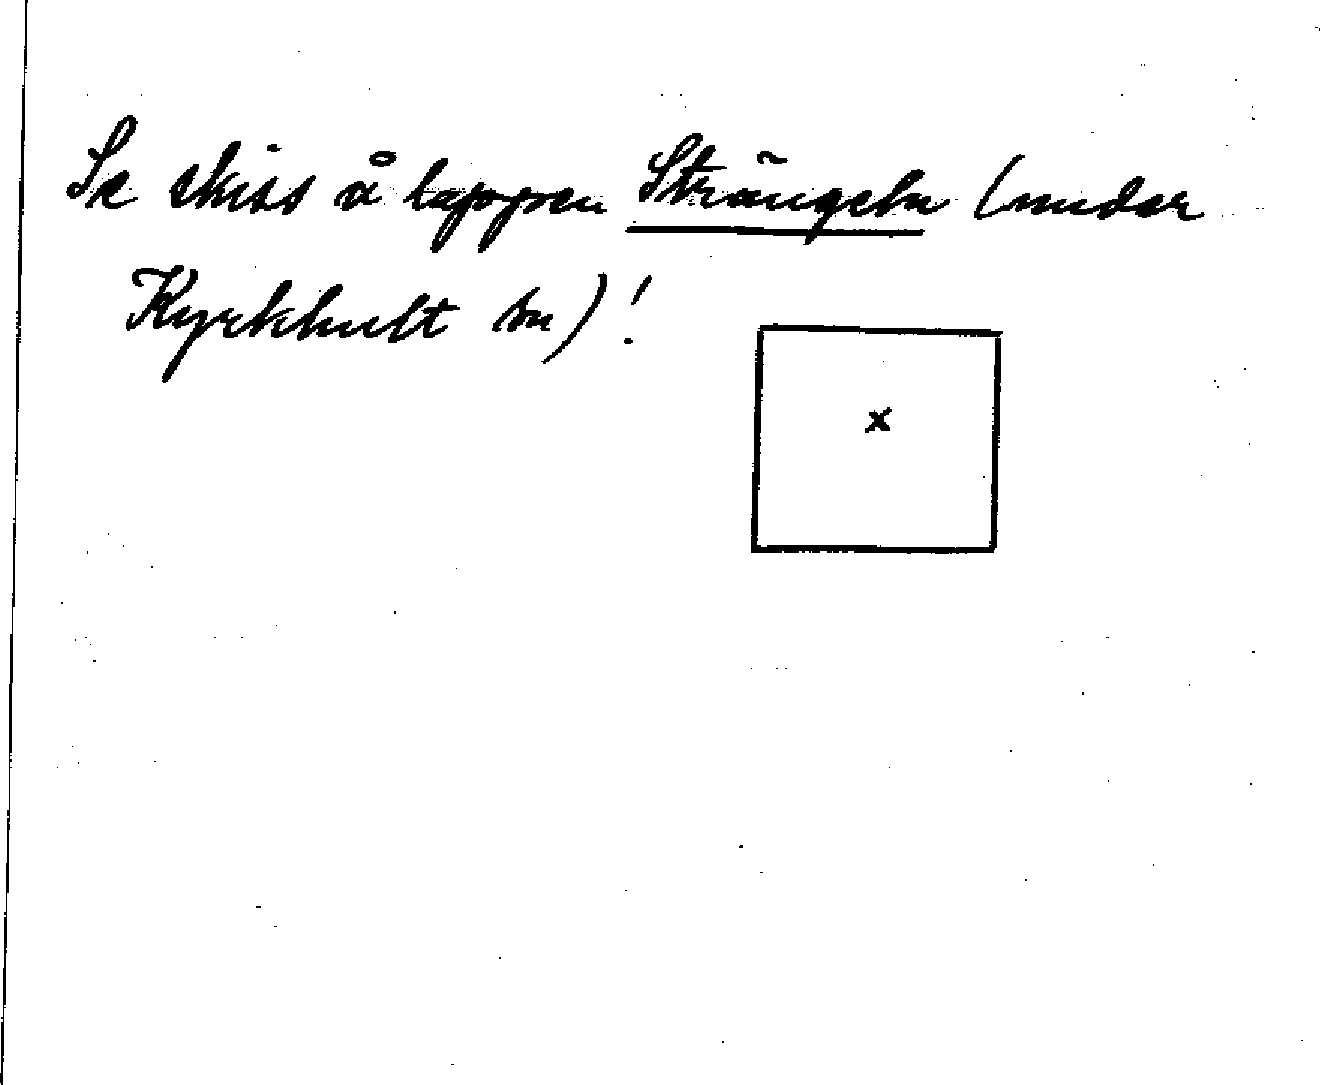 Se skiss å lappen Strängeln (under
Kyrkhult sn)!
x